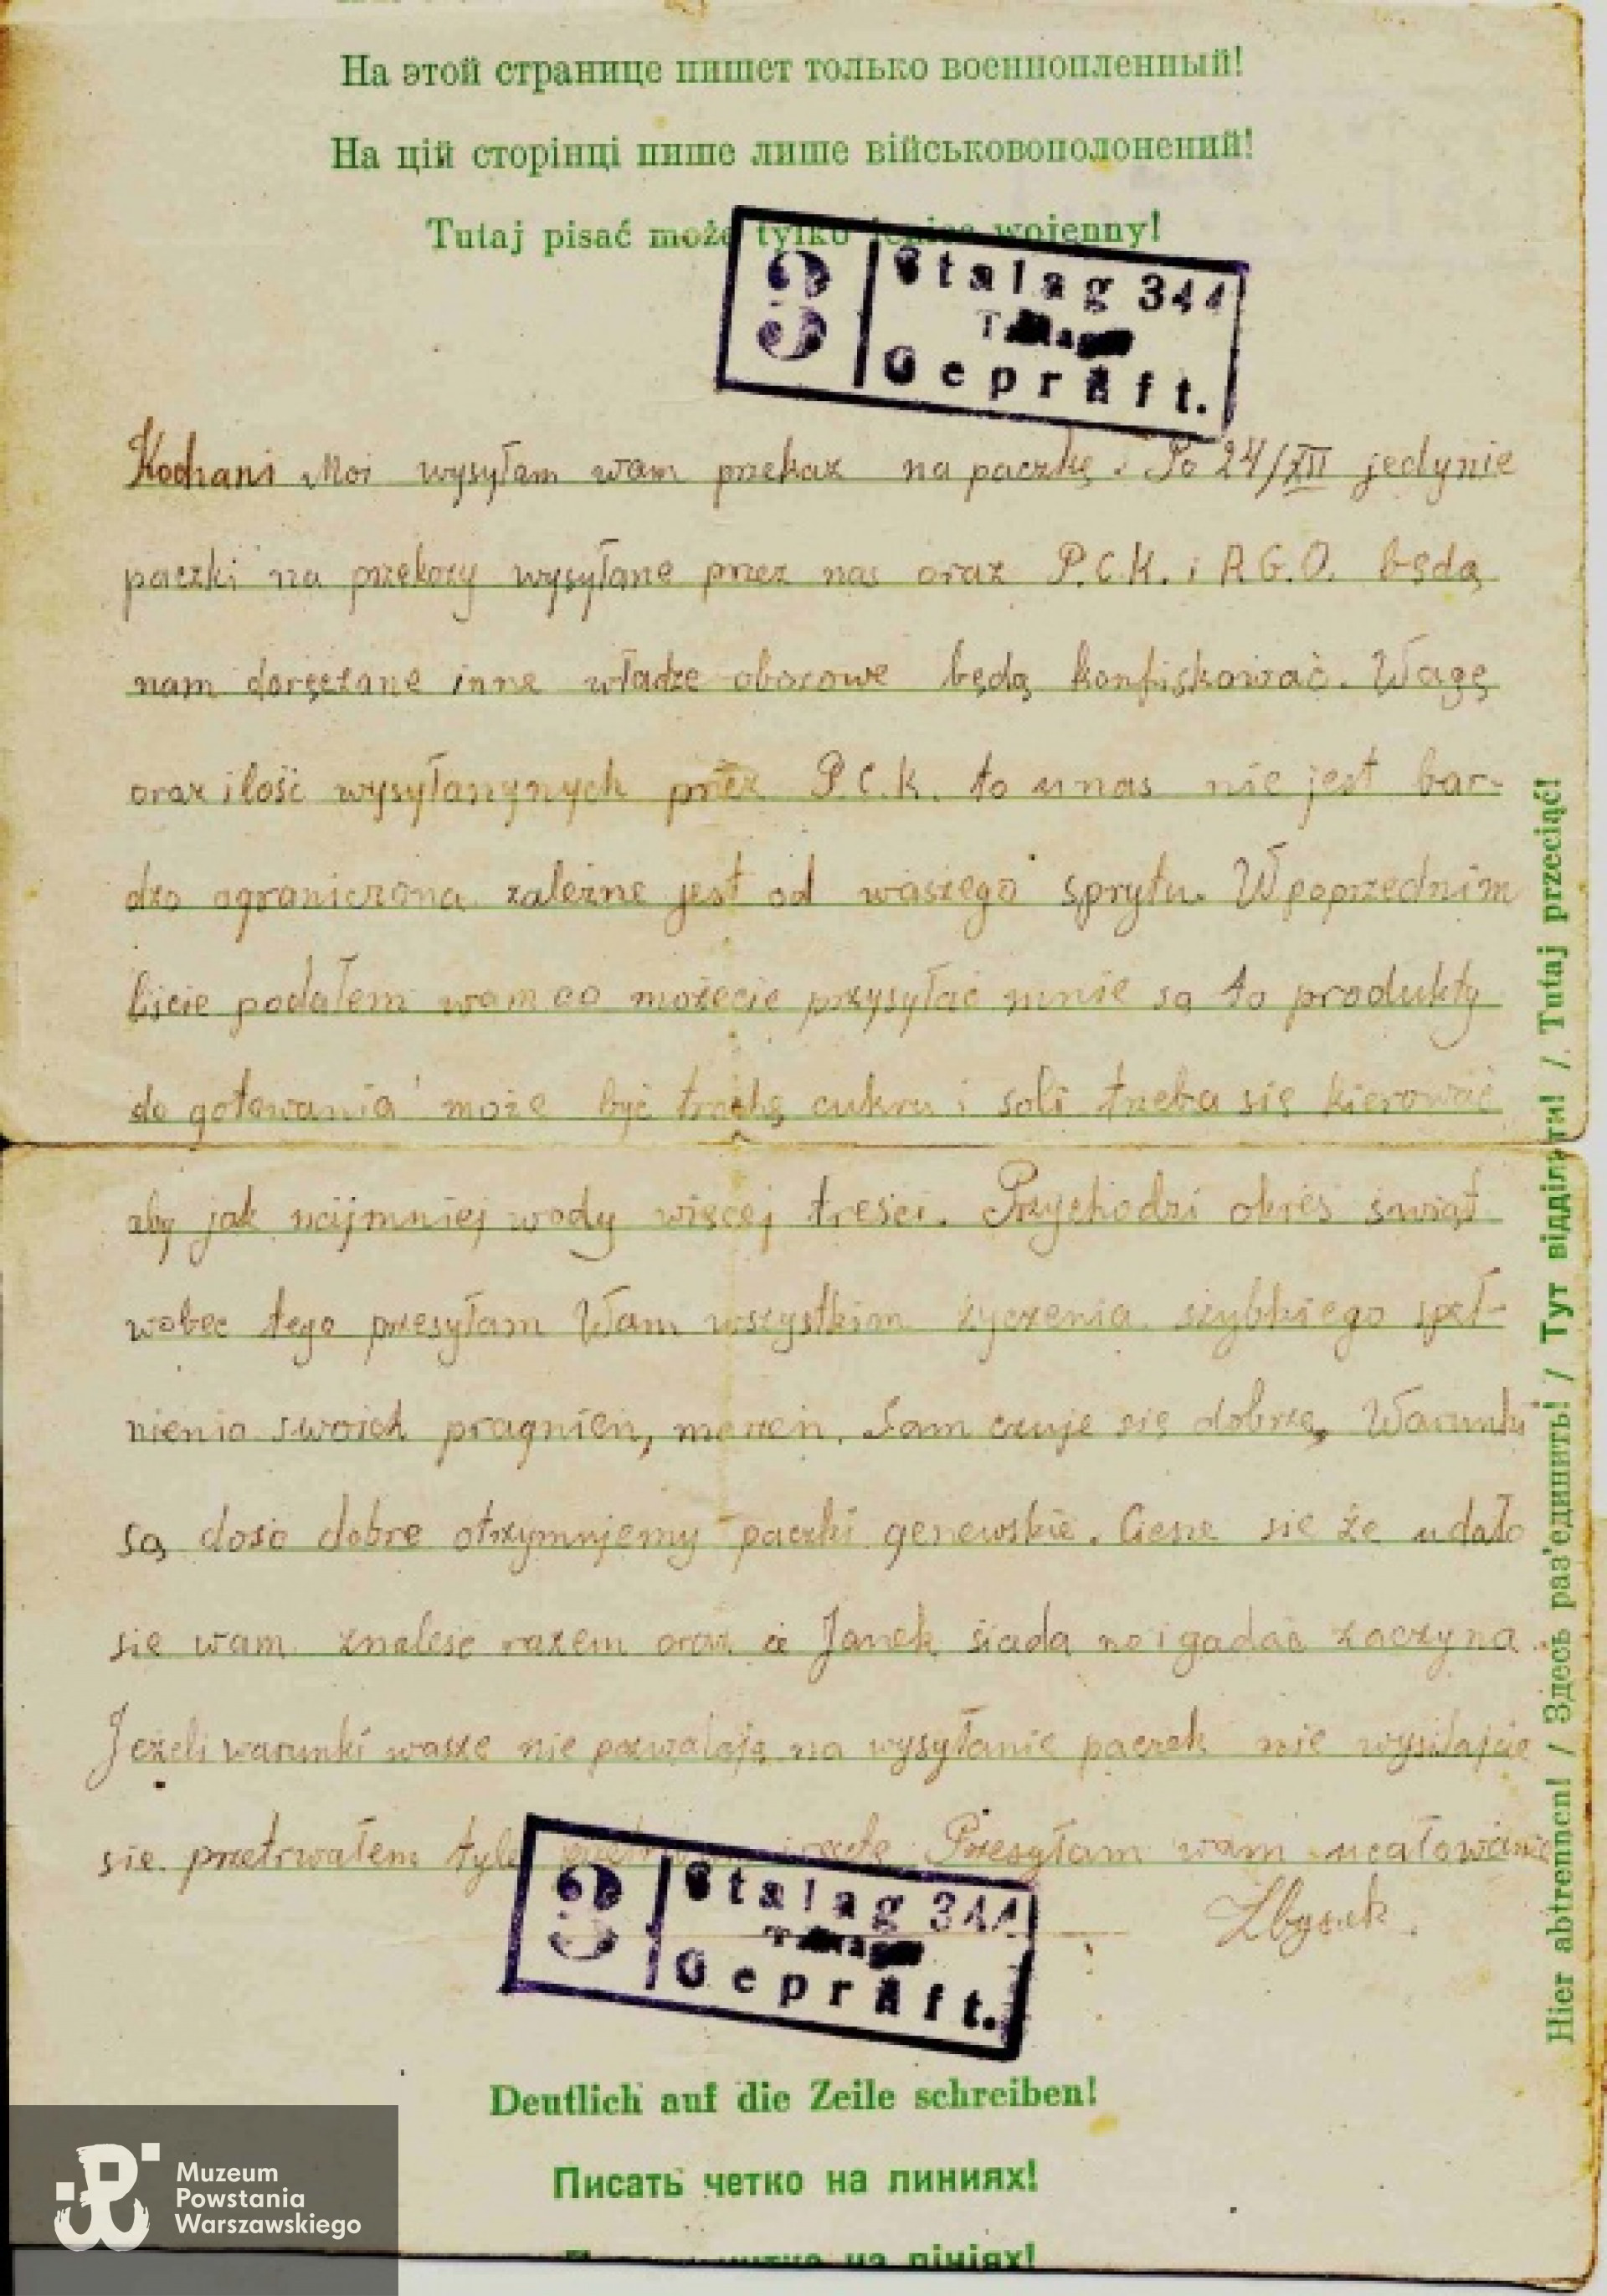 На этой странице пишет только военнопленный!
На цій сторінці пише лише військовополонений!
Tutaj pisać może tylko jeniec wojenny!
3 Stalag 344
Geprüft.
Kochani Moi wysyłam wam przekaz na paczkę. Po 24/XII jedynie
paczki na przekazy wysyłane przez nas oraz P.C.K. i R.G.O. będą
nam doręczane inne władze obozowe będą konfiskować. Wagę
oraz ilość wysyłanynych przez P.C.K. to u nas nie jest bar-
dzo ograniczona zależne jest od waszego sprytu. W poprzednim
liście podałem wam co możecie przysyłać mnie są to produkty
do gotowania może być trochę cukru i soli trzeba się kierować
aby jak najmniej wody więcej treści. Przychodzi okres świąt
wobec tego przesyłam Wam wszystkim życzenia szybkiego speł-
nienia swoich pragnień, marzeń. Sam czuje się dobrze, Warunki
są dość dobre otrzymujemy paczki genewskie. Ciesze sie że udało
sie wam znaleść razem oraz że Janek siada no i gadać zaczyna.
Jeżeli warunki wasze nie pozwalają na wysyłanie paczek nie wysilajcie
sie. przetrwałem tyle Przesyłam wam ucałowanie
Zbyszek.
3 Stalag 344
Geprüft.
Deutlich auf die Zeile schreiben!
Писать четко на линиях!
на лініях!
Hier abtrennen! / Здесь раз'единить! / Тут відділяти! / Tutaj przeciąć!
Muzeum
Powstania
Warszawskiego